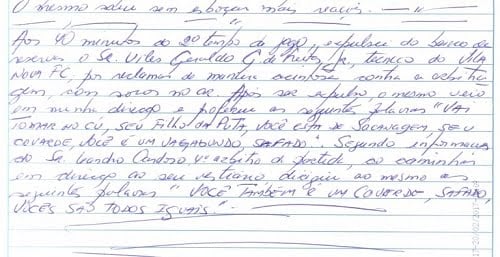 O mesmo saiu sem esboçar mais reação.
Aos 40 minutos do 2º tempo de jogo, expulsei do banco de
reservas o Sr. Viles Geraldo G. de Freitas Jr, técnico do VILA
NOVA FC, por reclamar de maneira acintosa contra a arbitra
gem, com socos no ar. Após ser expulso, o mesmo veio
em minha direção e proferiu as seguintes palavras "VAI
TOMAR NO CÚ, SEU FILHO DA PUTA, VOCÊ ESTÁ DE SACANAGEM, SEU
COVARDE, VOCÊ É UM VAGABUNDO, SAFADO". Segundo informações
do Sr. Leandro Cardoso, 4º árbitro da partida, ao caminhar
em direção ao seu vestiário dirigiu ao mesmo as
seguintes palavras "VOCÊ TAMBÉM É UM COVARDE, SAFADO,
VOCÊS SÃO TODOS IGUAIS".